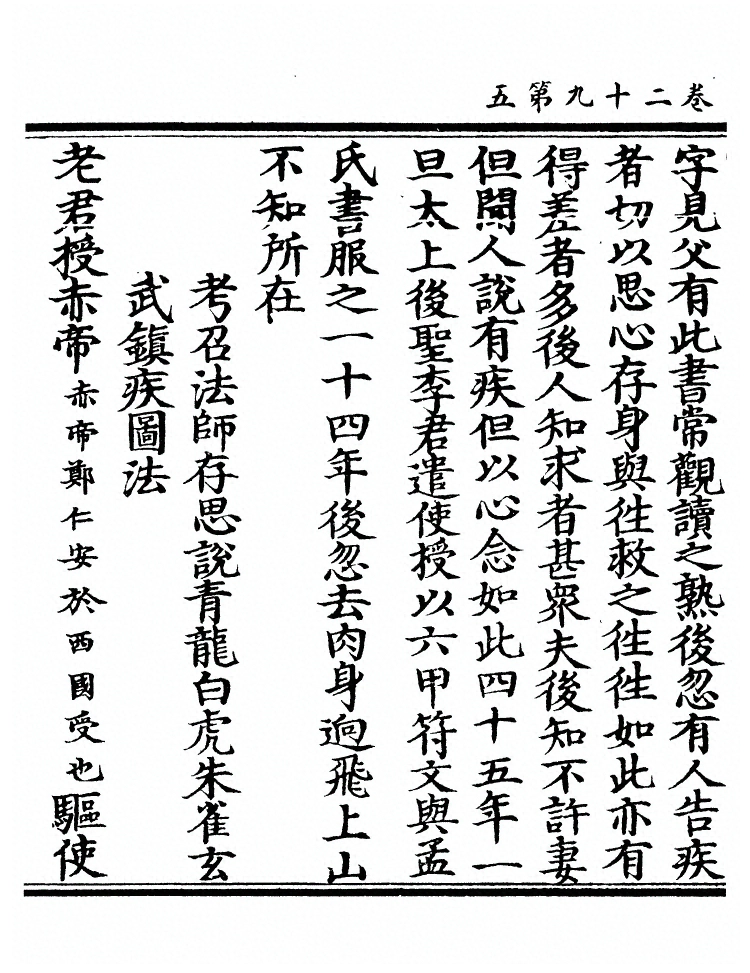 卷二十九第五
字見父有此書常觀讀之熟後忽有人告疾
者切以思心存身與往救之往往如此亦有
得差者多後人知求者甚眾夫後知不許妻
但聞人說有疾但以心念如此四十五年一
旦太上後聖李君遣使授以六甲符文與孟
氏書服之一十四年後忽去肉身迥飛上山
不知所在
考召法師存思說青龍白虎朱雀玄
武鎮疾圖法
老君授赤帝赤帝鄭仁安於西國受也驅使